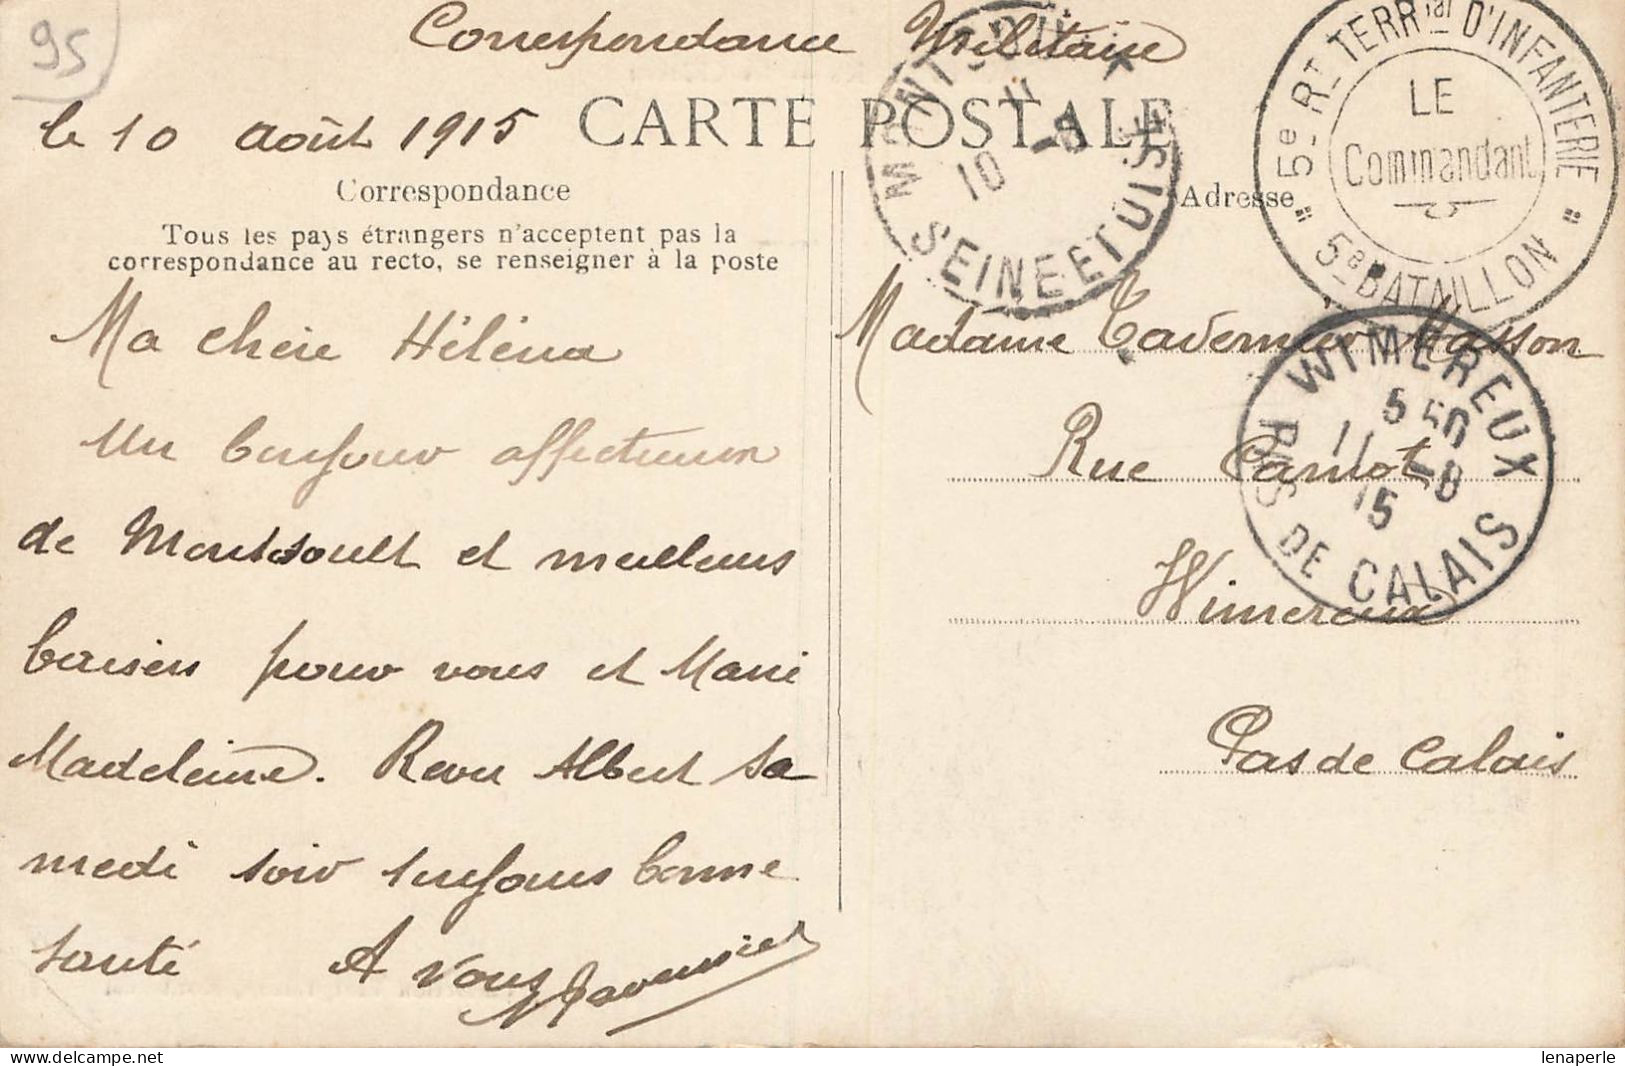 95
Correspondance Militaire
le 10 août 1915
CARTE POSTALE
Correspondance
Adresse
Tous les pays étrangers n'acceptent pas la
correspondance au recto, se renseigner à la poste
5e RT TERRial D'INFANTERIE
LE
Commandant
5e BATAILLON
10 -8
SEINE ET OISE
WIMEREUX
5 50
11 -8
15
PAS DE CALAIS
Ma chère Héléna
Un bonjour affectueux
de Montsoult et meilleurs
baisers pour vous et Marie
Madeleine. Revu Albert sa
medi soir toujours bonne
santé A vous
Tavernier
Madame Tavernier Masson
Rue Carnot
Wimereux
Pas de Calais
delcampe.net
lenaperle